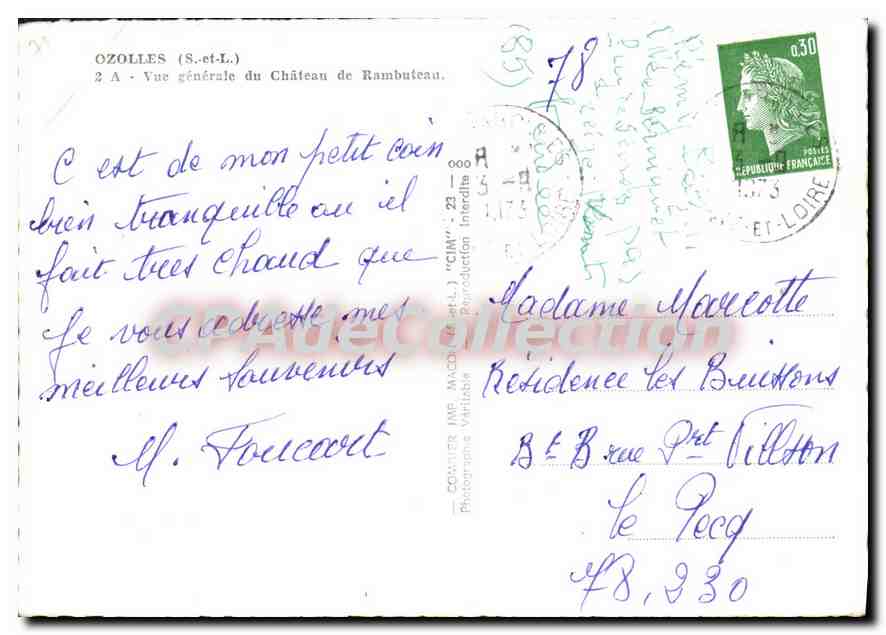 OZOLLES (S.-et-L.)
2 A - Vue générale du Château de Rambuteau.
C est de mon petit coin
bien tranquille ou il
fait tres chaud que
Je vous adresse mes
meilleurs souvenirs
M. Foucart
— COMBIER IMP. MACON (S.-et-L.) "CIM" - 23 - 000
Photographie Véritable Reproduction Interdite
78
(85)
0,30
POSTES
RÉPUBLIQUE FRANÇAISE
1973
ET-LOIRE
CPAdeCollection
Madame Marcotte
Résidence les Buissons
Bt B rue Prt Villson
le Pecq
78,230